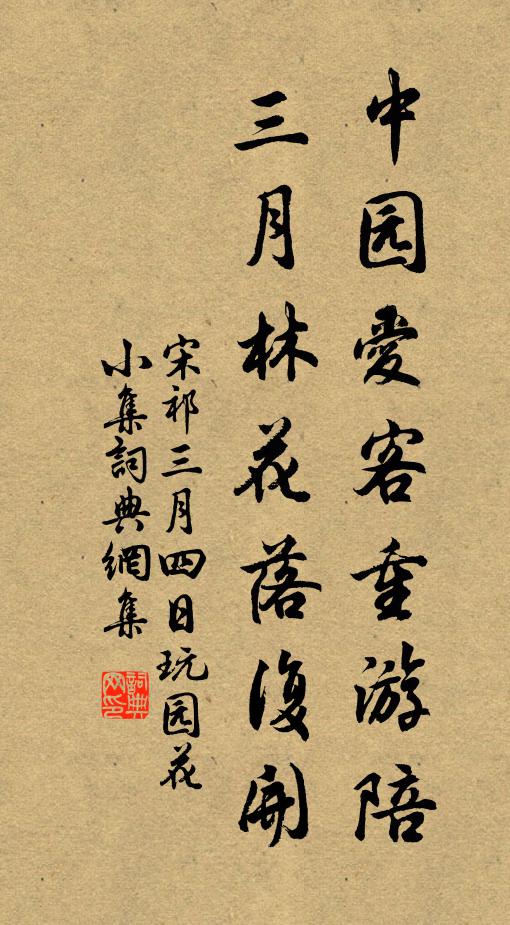 中园愛客重游陪
三月林花落復開
宋祁三月四日玩园花
小集詞典網集
詞典网印